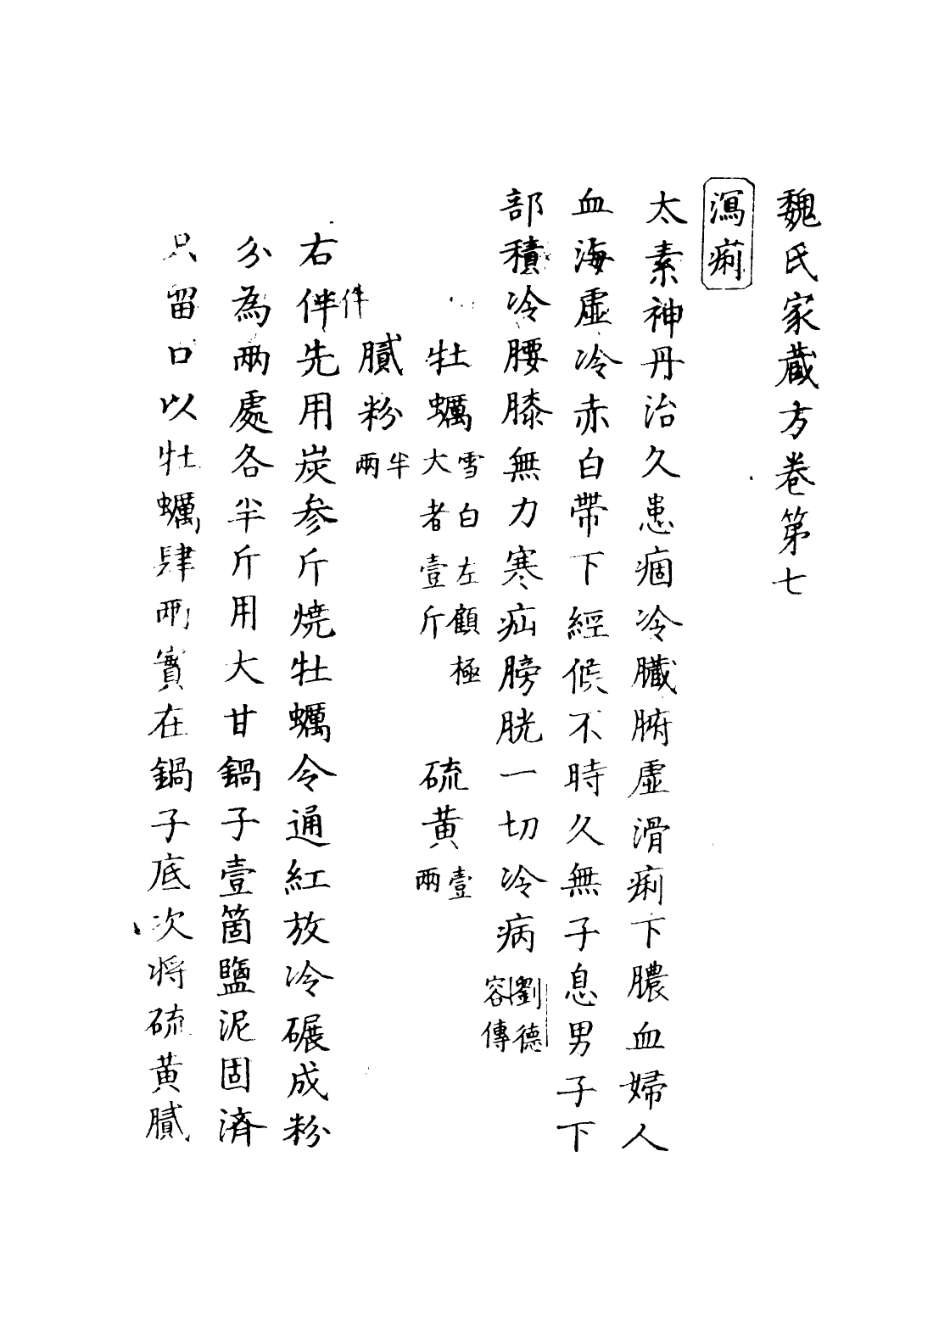 魏氏家蔵方卷第七
瀉痢
太素神丹治久患痼冷臓腑虚滑痢下膿血婦人
血海虚冷赤白帶下經候不時久無子息男子下
部積冷腰膝無力寒疝膀胱一切冷病劉德容傳
牡蠣雪白左顧極大者壹斤 硫黄壹兩
膩粉半兩
右伴件先用炭参斤燒牡蠣令通紅放冷碾成粉
分為兩處各半斤用大甘鍋子壹箇鹽泥固済
只留口以牡蠣肆兩實在鍋子底次将硫黄膩